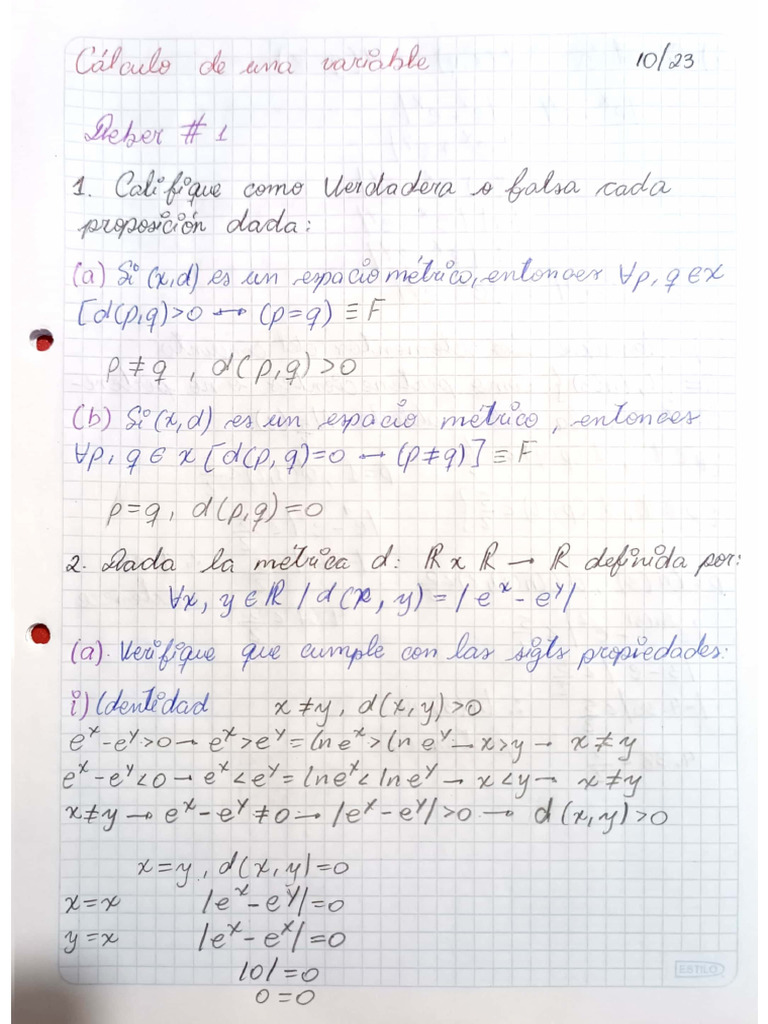 Cálculo de una variable 10/23
Deber # 1
1. Califique como Verdadera o falsa cada
proposición dada:
(a) Si (x,d) es un espacio métrico, entonces ∀p, q ∈ x
[d(p,q)>0 → (p=q) ≡ F
p ≠ q , d(p,q) >0
(b) Si (x,d) es un espacio métrico, entonces
∀p, q ∈ x [d(p,q)=0 → (p≠q)] ≡ F
p=q, d(p,q)=0
2. Dada la métrica d: ℝ x ℝ → ℝ definida por:
∀x, y ∈ ℝ / d(x, y) = |e^x - e^y|
(a). Verifique que cumple con las sigts propiedades:
i) Identidad x ≠ y, d(x,y)>0
e^x - e^y > 0 → e^x > e^y = ln e^x > ln e^y → x>y → x ≠ y
e^x - e^y < 0 → e^x < e^y = ln e^x < ln e^y → x<y → x ≠ y
x≠y → e^x - e^y ≠ 0 → |e^x - e^y| >0 → d(x,y)>0
x=y, d(x,y)=0
x=x |e^x - e^y|=0
y=x |e^x - e^x|=0
|0|=0
0=0
ESTILO